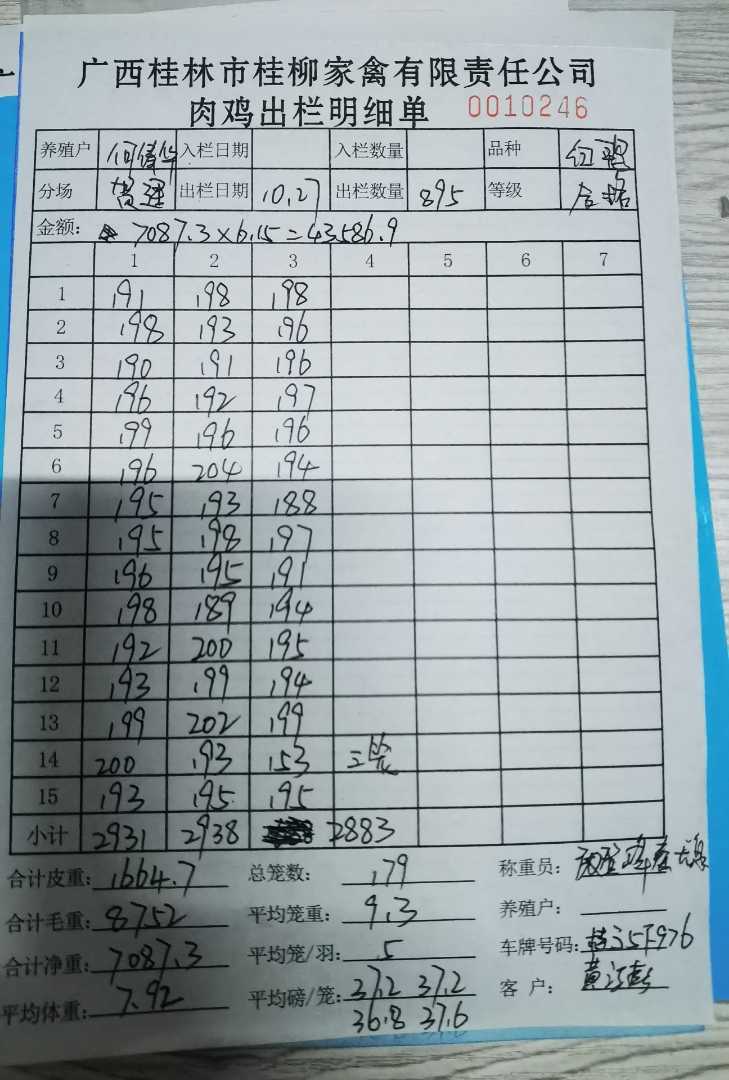 广西桂林市桂柳家禽有限责任公司
肉鸡出栏明细单 0010246
养殖户 入栏日期 入栏数量 品种
分场 出栏日期 10.27 出栏数量 895 等级
金额: 7087.3×6.15=43586.9
1 2 3 4 5 6 7
1 191 198 198
2 198 193 196
3 190 191 196
4 196 192 197
5 199 196 196
6 196 204 194
7 195 193 188
8 195 198 197
9 196 195 191
10 198 189 194
11 192 200 195
12 193 199 194
13 199 202 199
14 200 193 153 三笼
15 193 195 195
小计 2931 2938 2883
合计皮重: 1664.7 总笼数: 179 称重员:
合计毛重: 8752 平均笼重: 9.3 养殖户:
合计净重: 7087.3 平均笼/羽: 5 车牌号码:
平均体重: 7.92 平均磅/笼: 37.2 37.2 客户:
36.8 37.6